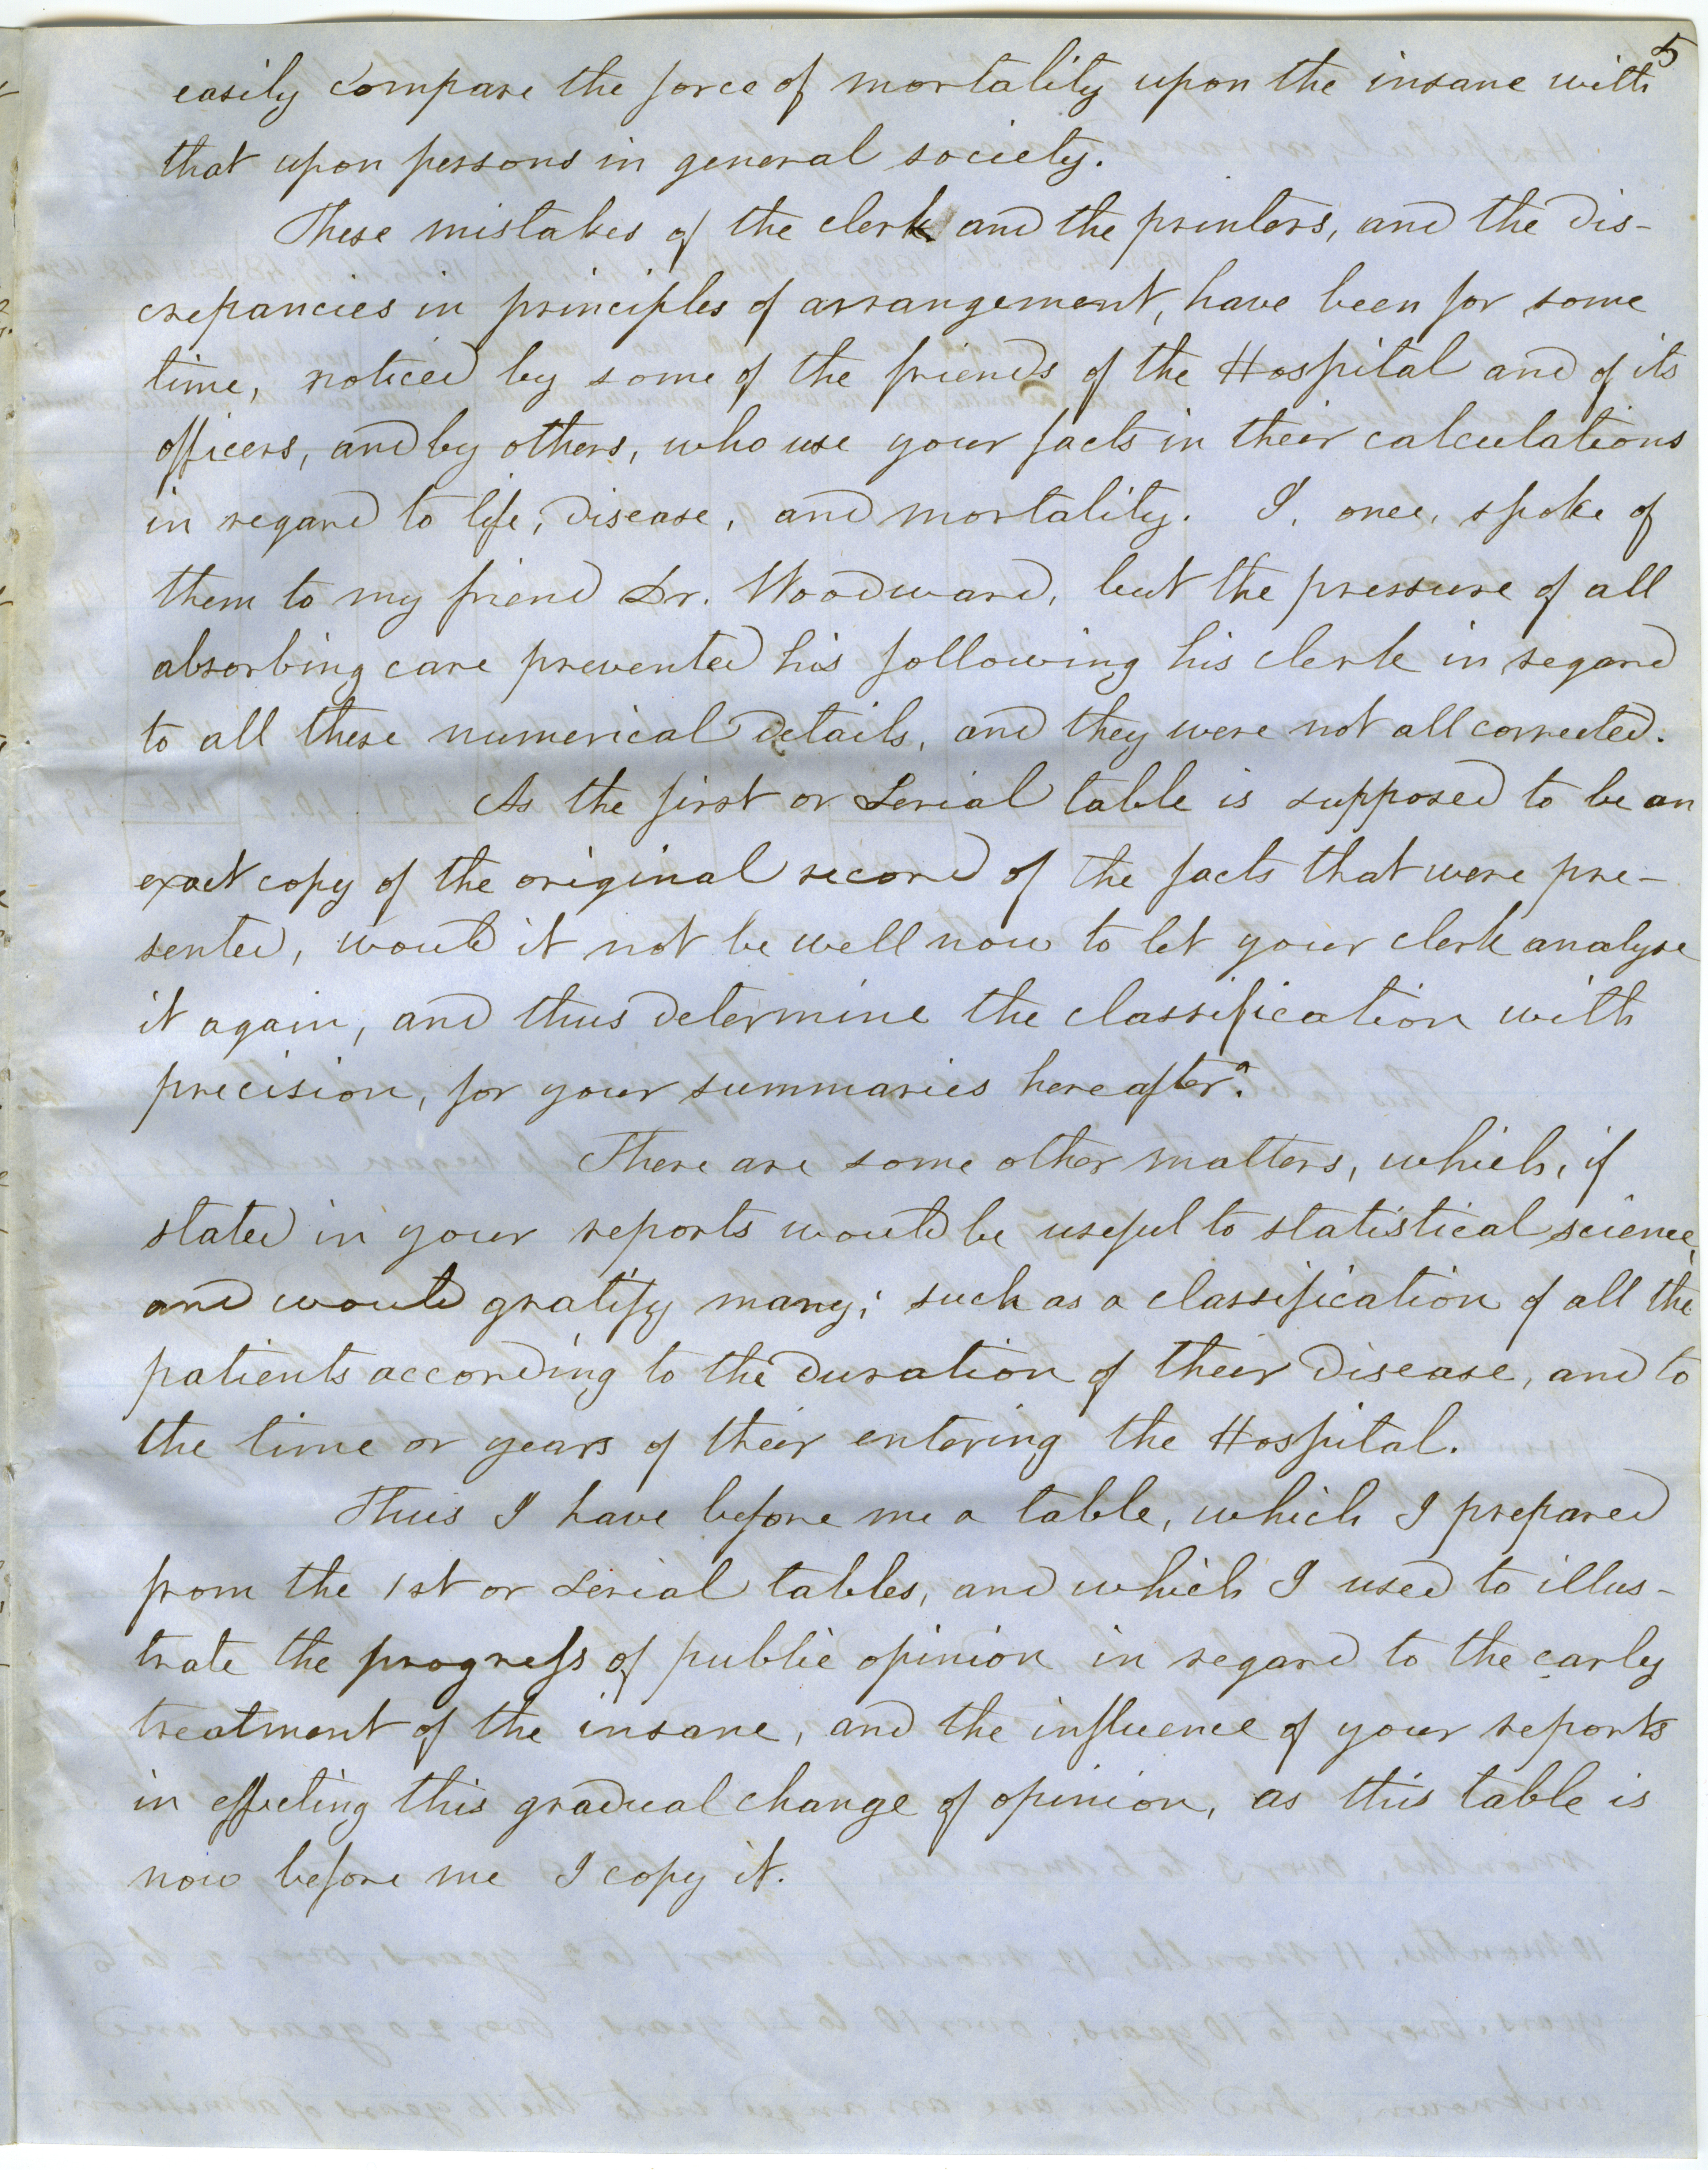 5
easily compare the force of mortality upon the insane with
that upon persons in general society.
These mistakes of the clerk and the printers, and the dis-
crepancies in principles of arrangement, have been for some
time, noticed by some of the friends of the Hospital and of its
officers, and by others, who use your facts in their calculations
in regard to life, disease, and mortality. I, once, spoke of
them to my friend Dr. Woodward, but the pressure of all
absorbing care prevented his following his clerk in regard
to all these numerical details, and they were not all corrected.
As the first or Serial table is supposed to be an
exact copy of the original record of the facts that were pre-
sented, would it not be well now to let your clerk analyse
it again, and thus determine the classification with
precision, for your summaries hereafter?
There are some other matters, which, if
stated in your reports would be useful to statistical science,
and would gratify many; such as a classification of all the
patients according to the duration of their disease, and to
the time or years of their entering the Hospital.
Thus I have before me a table, which I prepared
from the 1st or Serial tables, and which I used to illus-
trate the progress of public opinion in regard to the early
treatment of the insane, and the influence of your reports
in effecting this gradual change of opinion, as this table is
now before me I copy it.